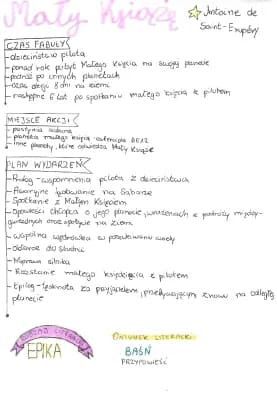 Mały Książę
Antoine de
Saint-Exupéry
CZAS FABUŁY
-dzieciństwo pilota
-ponad rok pobyt Małego Księcia na swojej planecie
-podróż po innych planetach
-czas akcji 8 dni na ziemi
-następne 6 lat po spotkaniu małego księcia z pilotem
MIEJSCE AKCJI
-pustynia Sahara
-planeta małego księcia-asteroida B612
-inne planety, które odwiedza Mały Książę
PLAN WYDARZEŃ
-Prolog-wspomnienia pilota z dzieciństwa
-Awaryjne lądowanie na Saharze
-Spotkanie z Małym Księciem
-Opowieści chłopca o jego planecie, wrażeniach z podróży między-
gwiezdnych oraz spotkaniu na Ziemi
-wspólna wędrówka w poszukiwaniu wody
-dotarcie do studni
-Naprawa silnika
-Rozstanie małego księcia z pilotem
-Epilog-tęsknota za przyjacielem, przebywającym znowu na odległej
planecie
RODZAJ LITERACKI
EPIKA
GATUNEK LITERACKI
BAŚŃ
PRZYPOWIEŚĆ